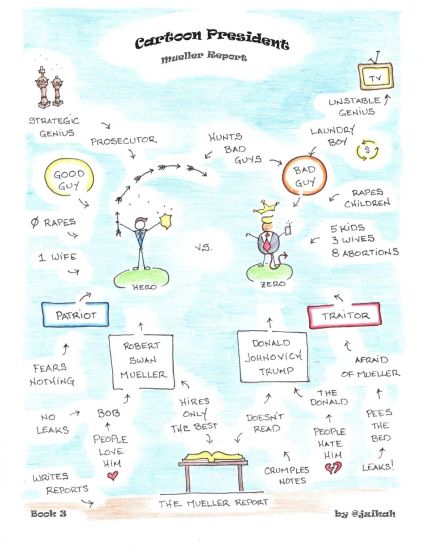 Cartoon President
Mueller Report
TV
STRATEGIC
GENIUS
PROSECUTOR
HUNTS
BAD
GUYS
UNSTABLE
GENIUS
LAUNDRY
BOY
$
GOOD
GUY
BAD
GUY
RAPES
CHILDREN
Ø RAPES
1 WIFE
VS.
5 KIDS
3 WIVES
8 ABORTIONS
HERO
ZERO
PATRIOT
TRAITOR
ROBERT
SWAN
MUELLER
DONALD
JOHNOVICH
TRUMP
FEARS
NOTHING
AFRAID
OF MUELLER
NO
LEAKS
BOB
HIRES
ONLY
THE BEST
DOESN'T
READ
THE
DONALD
PEES
THE
BED
PEOPLE
LOVE
HIM
PEOPLE
HATE
HIM
WRITES
REPORTS
CRUMPLES
NOTES
LEAKS!
THE MUELLER REPORT
Book 3
by @jzikah